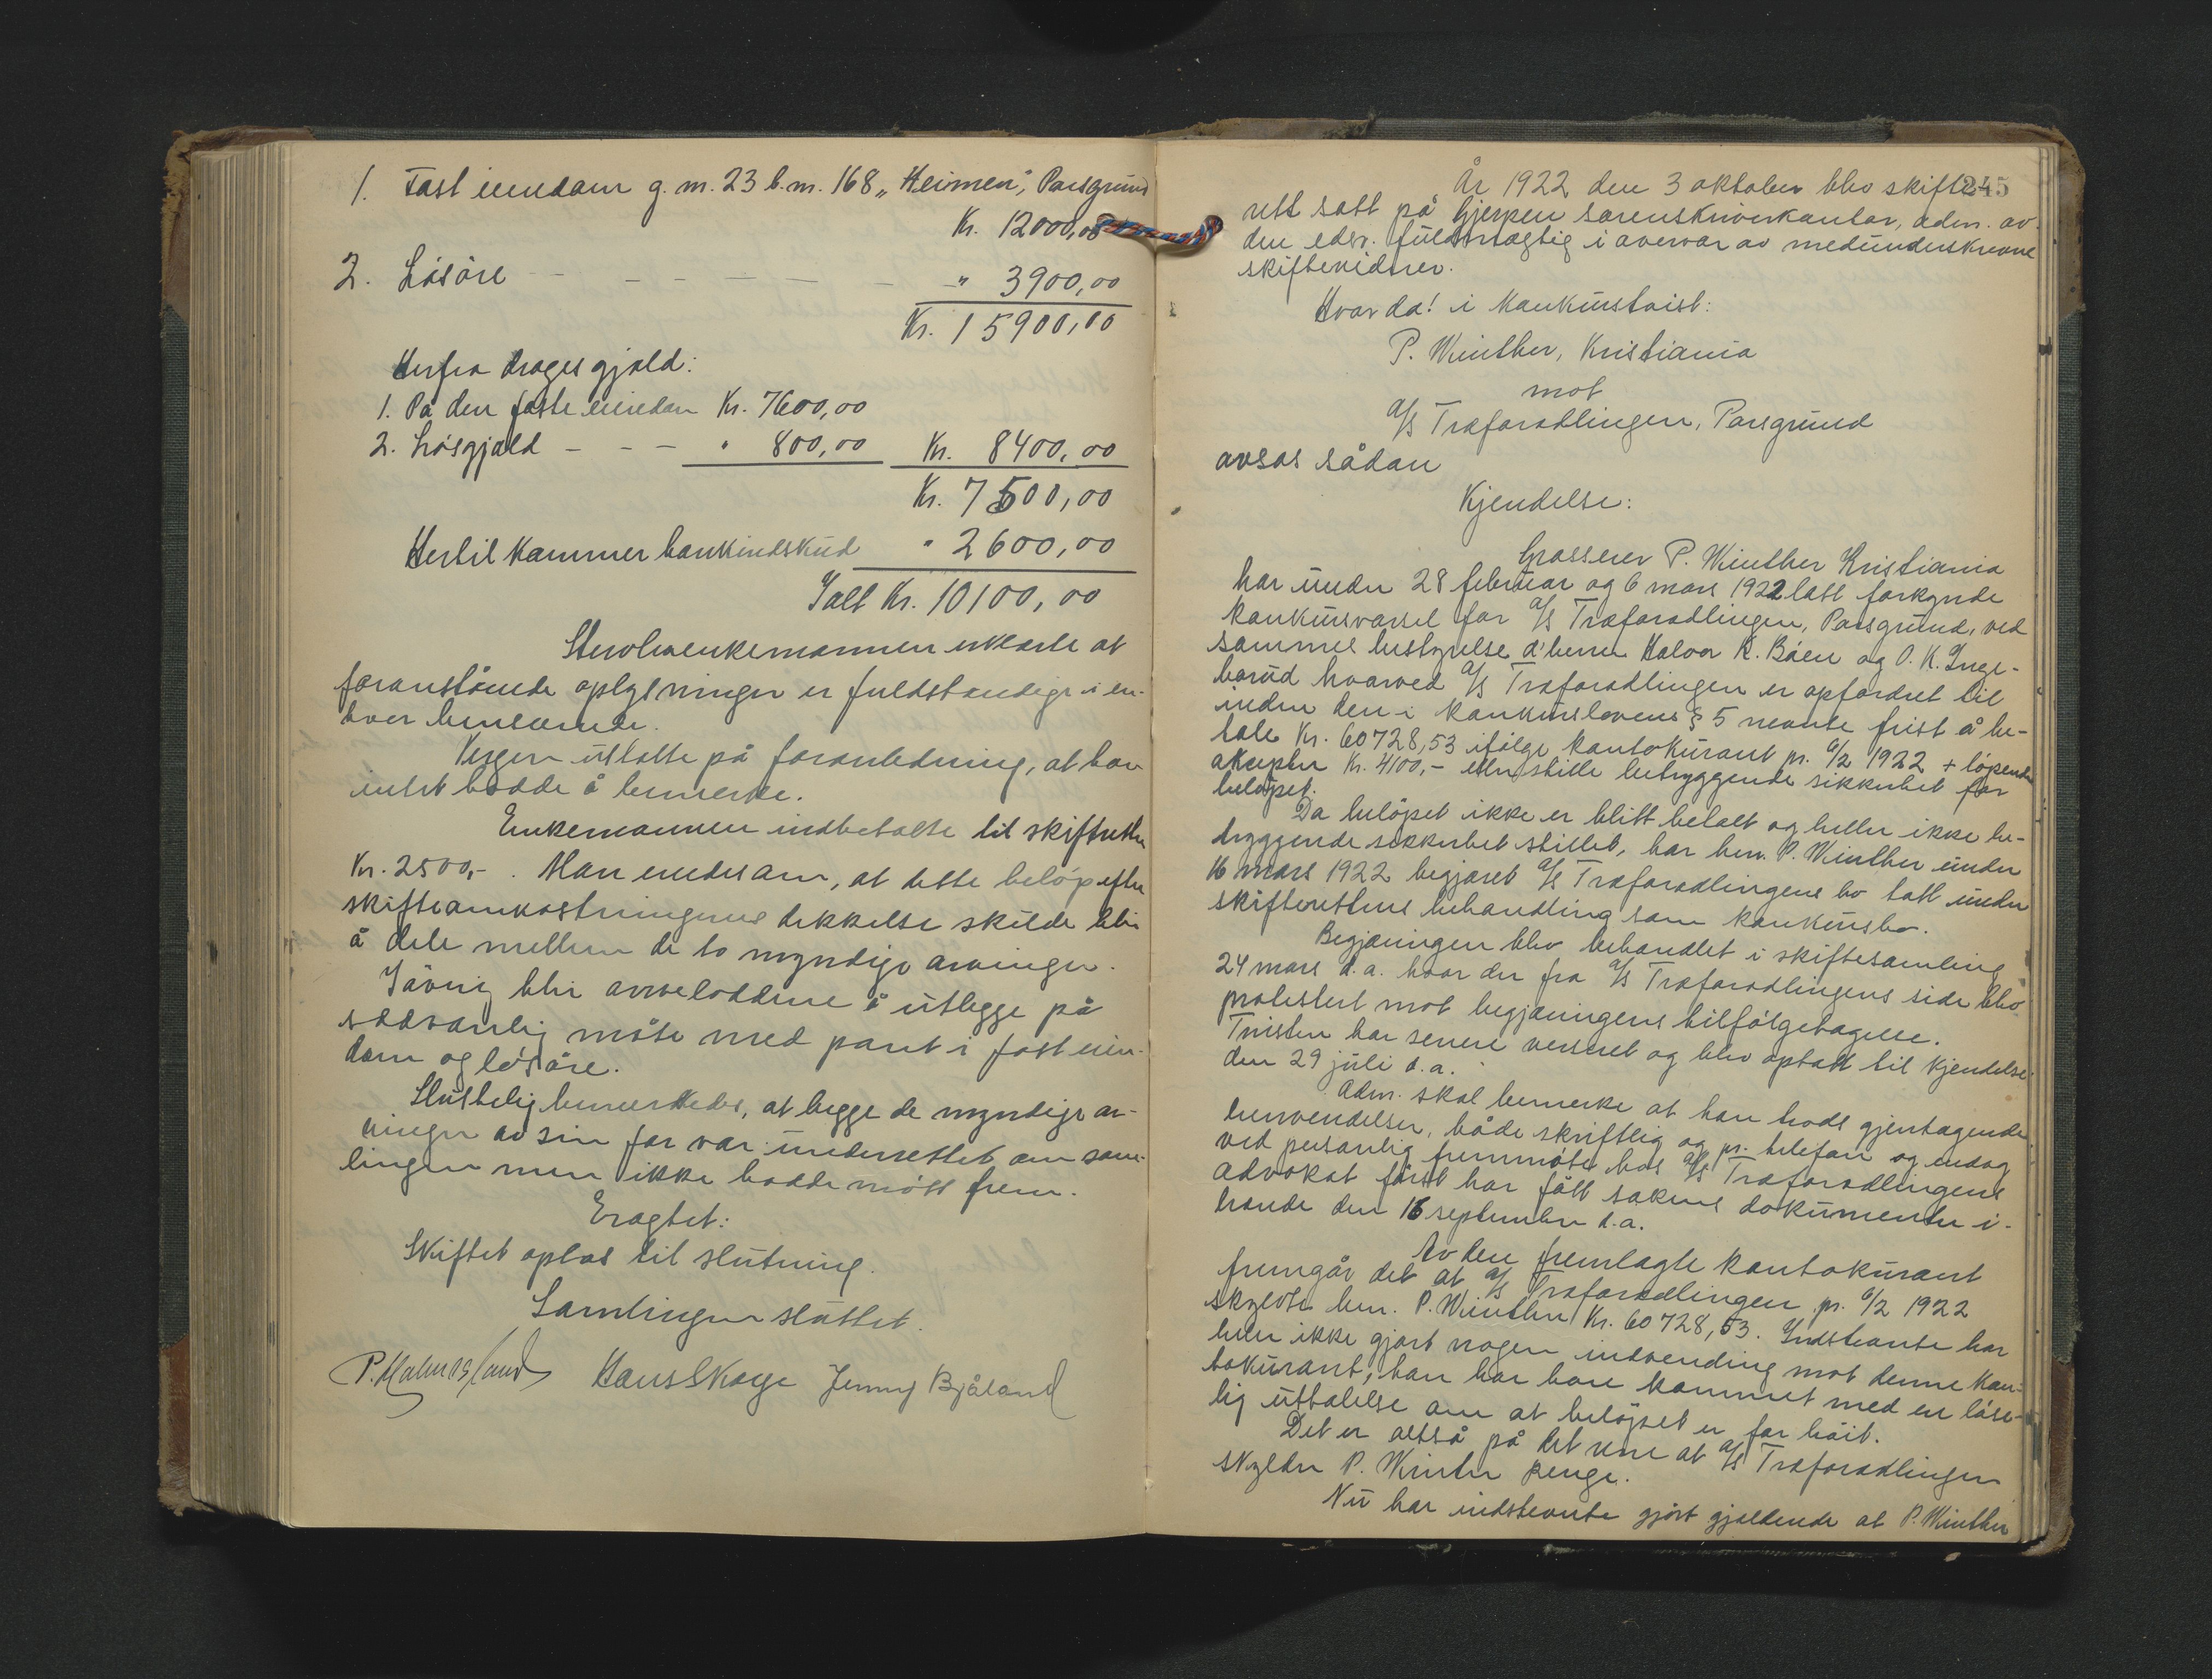 1. Fast eiendom g. nr. 23 b. nr. 168 „Heimen", Porsgrund
Kr. 12000,00
2. Lösöre - - - - - - " 3900,00
Kr. 15900,00
Herfra drages gjæld:
1. På den faste eiendom Kr. 7600,00
2. Lösgjæld - - - " 800,00 Kr. 8400,00
Kr. 7500,00
Hertil kommer bankindskud " 2600,00
Ialt Kr. 10100,00
Stervboenkemannen erklærte at
foranstående oplysninger er fuldstændige i en-
hver henseende.
Vergen uttalte på foranledning, at han
intet hadde å bemerke.
Enkemannen indbetalte til skifteretten
Kr. 2500,- . Man enedes om, at dette belöp efter
skifteomkostningenes dekkelse skulde bli
å dele mellem de to myndige arvinger.
Iövrig blir arveloddene å utlegge på
sedvanlig måte med pant i fast eien-
dom og lösöre.
Sluttelig bemerkedes, at begge de myndige ar-
vinger av sin far var underrettet om sam-
lingen men ikke hadde mött frem.
Eragtet:
Skiftet optas til slutning.
Samlingen sluttet.
P. Malmosland Hans Skoge Jenny Bjåland
245
År 1922 den 3 oktober blev skifte-
rett satt på Gjerpen sorenskriverkontor, adm. av
den edsv. fuldmægtig i overvær av medunderskrevne
skiftevidner.
Hvorda! i konkurstvist:
P. Winther, Kristiania
mot
A/S Træforædlingen, Porsgrund
avsas sådan
Kjendelse:
Grosserer P. Winther Kristiania
har under 28 februar og 6 mars 1922 latt forkynde
konkursvarsel for A/S Træforædlingen, Porsgrund, ved
sammes bestyrelse d'herrer Halvor K. Båen og O. K. Inge-
borud hvorved A/S Træforædlingen er opfordret til
inden den i konkurslovens § 5 nevnte frist å be-
tale Kr. 60728,53 ifölge kontokurant pr. 6/2 1922 + löpende
aksepter Kr. 4100,- eller stille betryggende sikkerhet for
belöpet.
Da belöpet ikke er blitt betalt og heller ikke be-
tryggende sikkerhet stillet, har herr P. Winther under
16 mars 1922 begjæret A/S Træforædlingens bo tatt under
skifterettens behandling som konkursbo.
Begjæringen blev behandlet i skiftesamling
24 mars d.a. hvor der fra A/S Træforædlingens side blev
protestert mot begjæringens tilfölgetagelse.
Tvisten har senere versert og blev optatt til kjendelse
den 29 juli d.a.
Adm. skal bemerke at han trods gjentagende
henvendelser, både skriftlig og pr. telefon og endog
ved personlig fremmöte hos A/S Træforædlingens
advokat först har fått sakens dokumenter i-
hænde den 16 september d.a.
Av den fremlagte kontokurant
fremgår det at A/S Træforædlingen pr. 6/2 1922
skyldte herr P. Winther Kr. 60728,53. Indstevnte har
heller ikke gjort nogen indvending mot denne kon-
tokurant, han har bare kommet med en löse-
lig uttalelse om at belöpet er for höit.
Det er altså på det rene at A/S Træforædlingen
skylder P. Winther penge.
Nu har indstevnte gjort gjældende at P. Winther